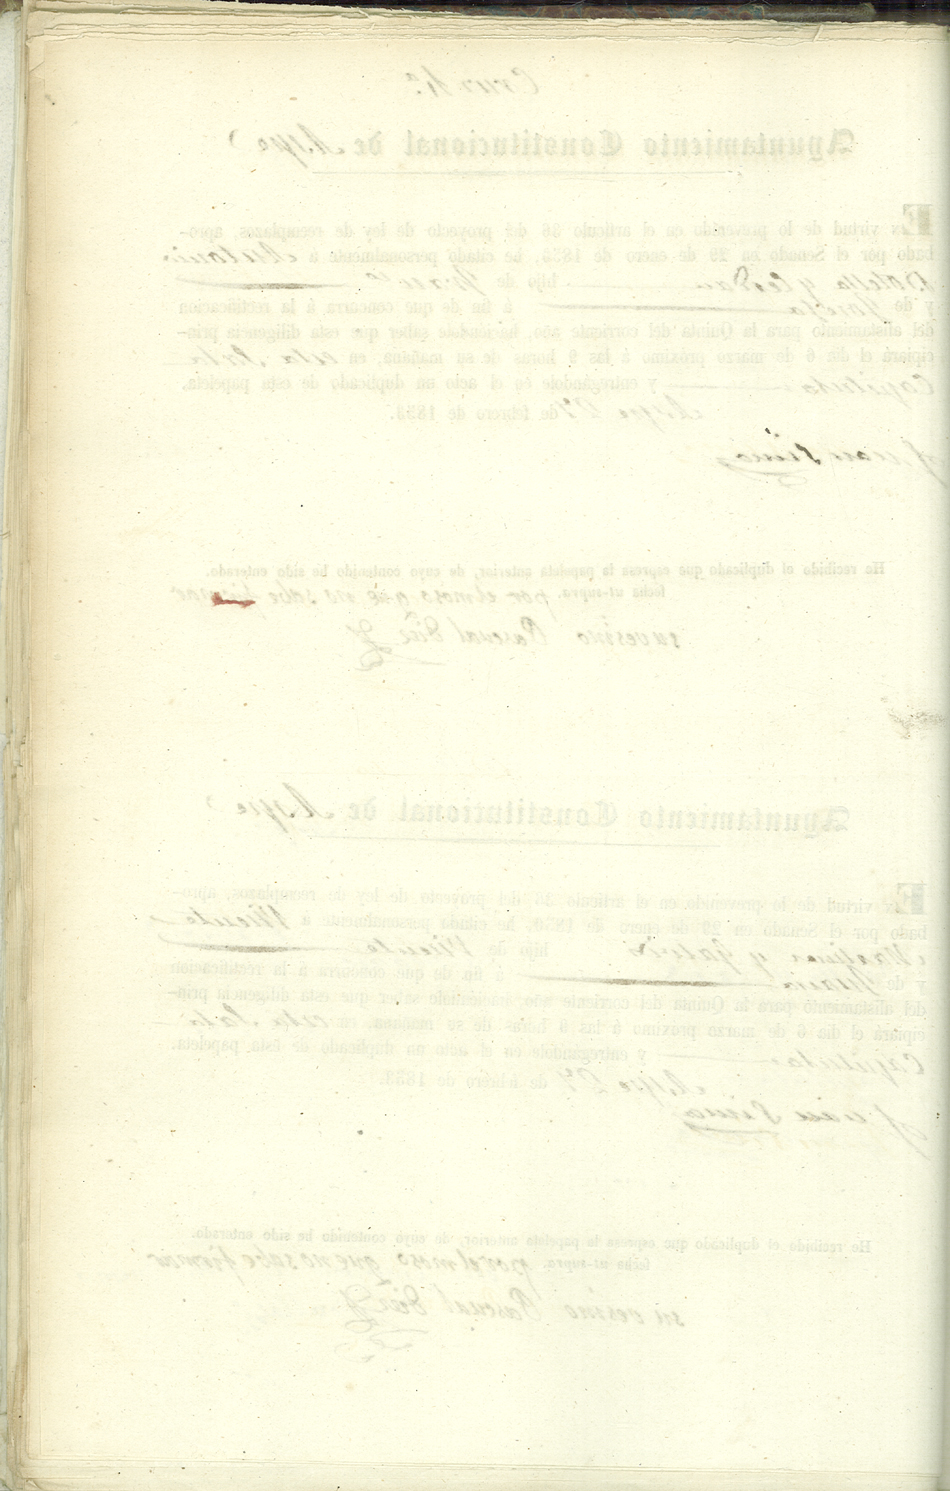 Ayuntamiento Constitucional de Aspe
En virtud de lo prevenido en el artículo 36 del proyecto de ley de reemplazos, apro-
bado por el Senado en 29 de enero de he citado personalmente á Antonio
y hijo de
y de Teresa á fin de que concurra á la rectificacion
del alistamiento para la Quinta del corriente año, haciéndole saber que esta diligencia prin-
cipiará el dia 6 de marzo próximo á las 9 horas de su mañana, en esta Sala
Capitular y entregándole en el acto un duplicado de esta papeleta.
Aspe 27 de febrero de
Juan
He recibido el duplicado que espresa la papeleta anterior, de cuyo contenido he sido enterado.
fecha ut-supra. por el moso que no sabe firmar
su vesino Pascual Diez
Ayuntamiento Constitucional de Aspe
En virtud de lo prevenido en el artículo 36 del proyecto de ley de reemplazos, apro-
bado por el Senado en 29 de enero de he citado personalmente á Vicente
Martinez y hijo de Vicente
y de Maria á fin de que concurra á la rectificacion
del alistamiento para la Quinta del corriente año, haciéndole saber que esta diligencia prin-
cipiará el dia 6 de marzo próximo á las 9 horas de su mañana, en esta Sala
Capitular y entregándole en el acto un duplicado de esta papeleta.
Aspe 27 de febrero de
Juan
He recibido el duplicado que espresa la papeleta anterior, de cuyo contenido he sido enterado.
fecha ut-supra. por el moso que no sabe firmar
su vesino Pascual Diez